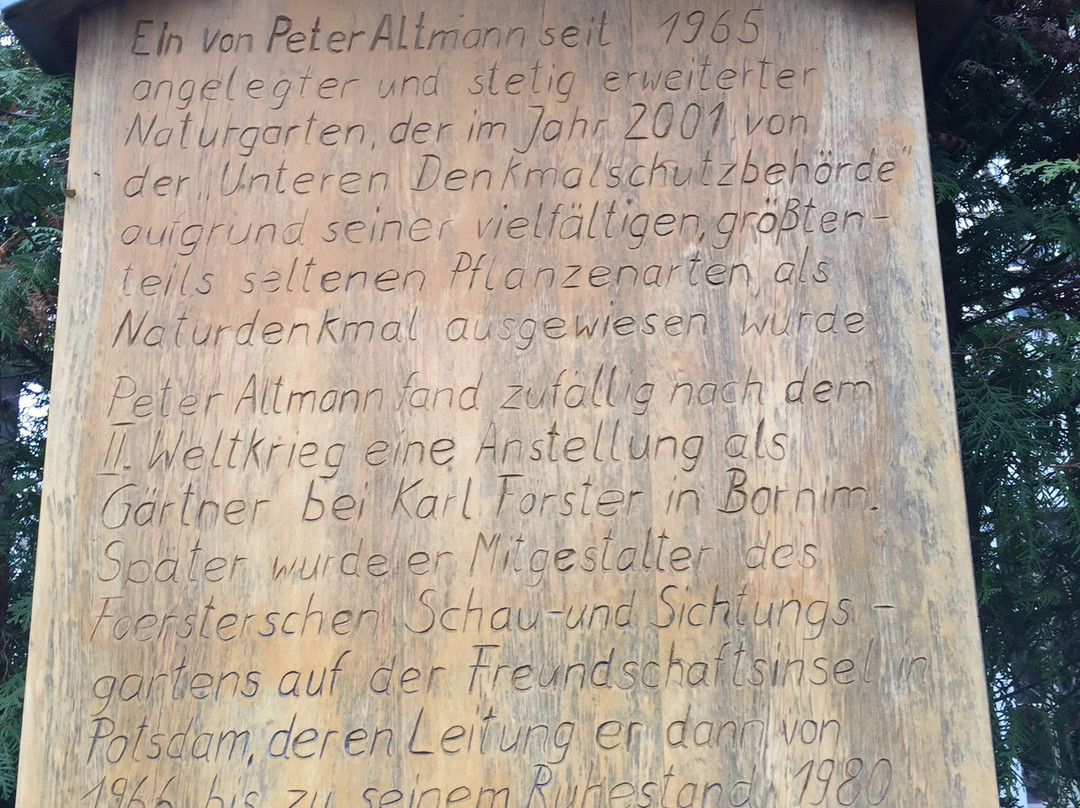 EIn von Peter Altmann seit 1965
angelegter und stetig erweiterter
Naturgarten, der im Jahr 2001 von
der „Unteren Denkmalschutzbehörde“
aufgrund seiner vielfältigen, größten-
teils seltenen Pflanzenarten, als
Naturdenkmal ausgewiesen wurde
Peter Altmann fand zufällig nach dem
II. Weltkrieg eine Anstellung als
Gärtner bei Karl Förster in Bornim.
Später wurde er Mitgestalter des
Foersterschen Schau-und Sichtungs-
gartens auf der Freundschaftsinsel in
Potsdam, deren Leitung er dann von
1966 bis zu seinem Ruhestand 1980